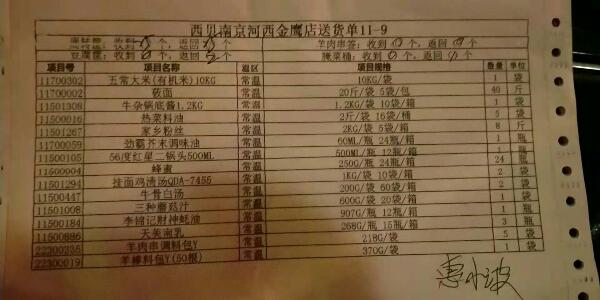 西贝南京河西金鹰店送货单11-9
收到 个，返回 个 羊肉串签：收到 0 个，返回 0 个
豆腐筐：收到 个，返回 个 腌菜桶：收到 0 个，返回 个
项目号 项目名称 温区 项目规格 数量 单位
11700302 五常大米(有机米)10KG 常温 10KG/袋 1 袋
11700002 莜面 常温 20斤/袋 5袋/包 40 斤
11501308 牛杂锅底酱1.2KG 常温 1.2KG/袋 10袋/箱 1 袋
11500016 热菜料油 常温 2斤/袋 16袋/桶 5 袋
11501267 家乡粉丝 常温 2KG/袋 5袋/箱 8 斤
11700059 劲霸芥末调味油 常温 60ML/瓶 24瓶/箱 1 瓶
11500105 56度红星二锅头500ML 常温 500ML/瓶 12瓶/箱 1 瓶
11500004 蜂蜜 常温 250G/瓶 24瓶/箱 24 瓶
11501294 挂面鸡清汤QDA-7455 常温 1KG/袋 10袋/箱 2 袋
11500447 牛骨白汤 常温 200G/袋 60袋/箱 2 袋
11501008 三种蘑菇汁 常温 600G/袋 20袋/箱 1 袋
11500184 李锦记财神蚝油 常温 907G/瓶 12瓶/箱 1 瓶
11500886 天美南乳 常温 268G/瓶 15瓶/箱 3 瓶
22300335 羊肉串调料包Y 常温 218G/袋 5 袋
22300019 羊棒料包Y(50根) 常温 370G/袋 1 袋
惠小波